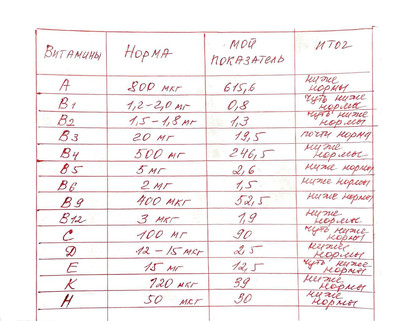 ВИТАМИНЫ НОРМА МОЙ ПОКАЗАТЕЛЬ ИТОГ
А 800 МКГ 615,6 НИЖЕ НОРМЫ
В1 1,2-2,0 МГ 0,8 ЧУТЬ НИЖЕ НОРМЫ
В2 1,5-1,8 МГ 1,3 ЧУТЬ НИЖЕ НОРМЫ
В3 20 МГ 19,5 ПОЧТИ НОРМА
В4 500 МГ 246,5 НИЖЕ НОРМЫ
В5 5 МГ 2,6 НИЖЕ НОРМЫ
В6 2 МГ 1,5 НИЖЕ НОРМЫ
В9 400 МКГ 52,5 НИЖЕ НОРМЫ
В12 3 МКГ 1,9 НИЖЕ НОРМЫ
С 100 МГ 90 ЧУТЬ НИЖЕ НОРМЫ
Д 12-15 МКГ 2,5 НИЖЕ НОРМЫ
Е 15 МГ 12,5 ЧУТЬ НИЖЕ НОРМЫ
К 120 МКГ 39 НИЖЕ НОРМЫ
Н 50 МКГ 30 НИЖЕ НОРМЫ